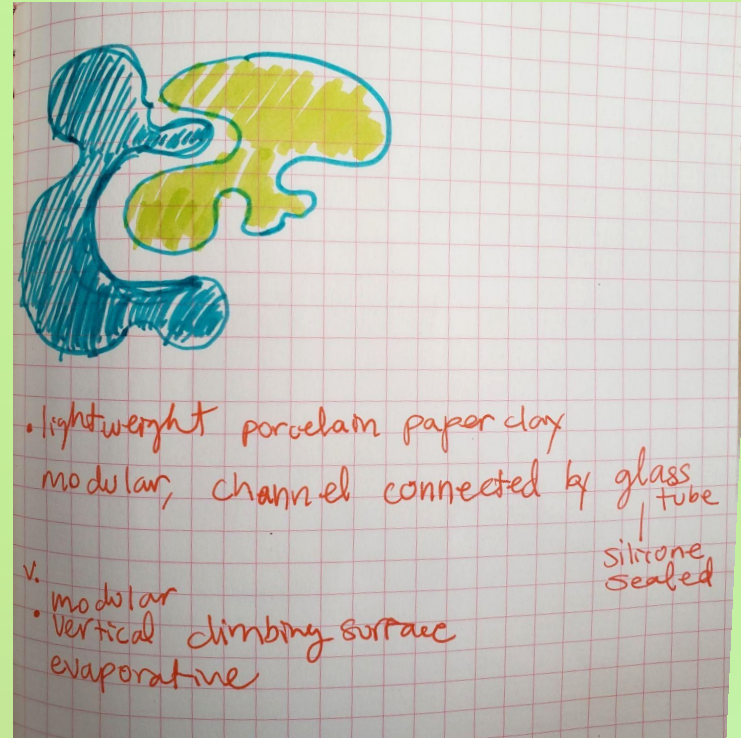 • lightweight porcelain paper clay
modular, channel connected by glass
tube
silicone
sealed
v.
modular
• vertical climbing surface
evaporative